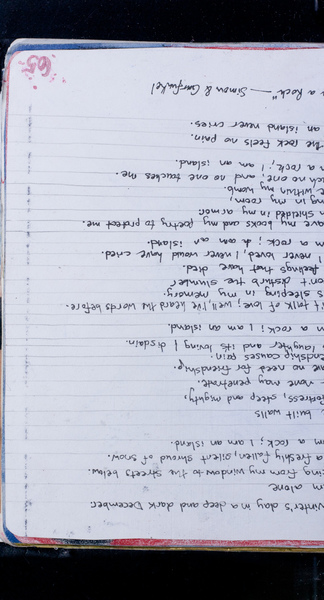 winter's day in a deep and dark December.
m alone
zing from my window to the streets below
a freshly fallen, silent shroud of snow.
m a rock; I am an island.
built walls
fortress, steep and mighty,
none may penetrate.
ve no need for friendship.
endship causes pain.
laughter and its loving I disdain.
m a rock; I am an island.
't talk of love; well, I've heard the words before
s sleeping in my memory.
on't disturb the slumber
feelings that have died.
I never loved, I never would have cried.
m a rock; I am an island.
ave my books and my poetry to protect me.
shielded in my armor
ing in my room,
within my womb.
uch no one, and no one touches me.
m a rock; I am an island.
the rock feels no pain.
an island never cries.
a Rock" — Simon & Garfunkel
65